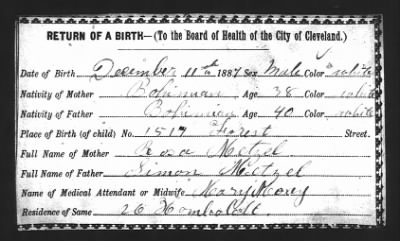 RETURN OF A BIRTH—(To the Board of Health of the City of Cleveland.)
Date of Birth December 11th 1887 Sex Male Color white
Nativity of Mother Bohemian Age 38 Color white
Nativity of Father Bohemian Age 40 Color white
Place of Birth (of child) No. 1517 Forest Street.
Full Name of Mother Rosa Metzel
Full Name of Father Simon Metzel
Name of Medical Attendant or Midwife Mary
Residence of Same 26 Humboldt